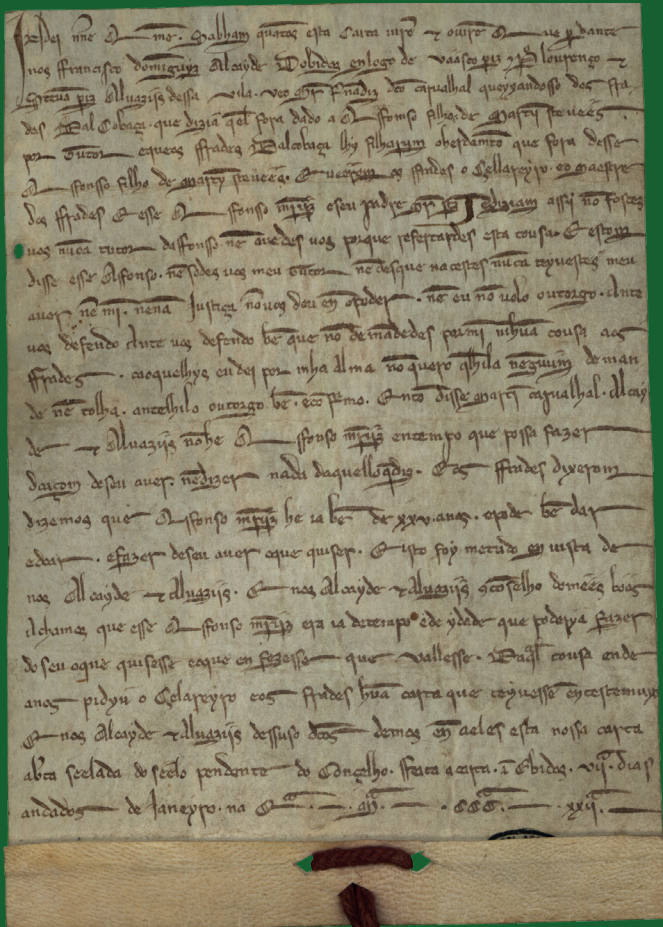 dei nñe Am̃e. Sabham quãtos esta Carta uirẽ e ouirẽ Que perdante
nos ffrancisco domĩguiz Alcayde Dobidos enlogo de Vaãsco periz e P lourenço e
Steuã periz Aluaziis dessa vila. ueo Mr̃ Fñadiz dc̃o carualhal queyxandosso dos fra
des Dalcobaça. que diziã q̃el fora dado a Affonso filho de Martĩ steuẽes
por Tutor eque os ffrades Dalcobaça lhy filharum oherdamẽto que fora desse
Affonso filho de Marty steuẽes. E ueerem os ffrades o Cellareyro. eo Maestre
dos ffrades E esse Affonso mr̃jz eseu padre diziam assi nõ fostes
uos nũca tutor daffonso. nẽ auedes uos porque refertardes esta cousa. E estom
disse esse Alfonso. nẽ sodes uos meu Tutor nẽ desque nacestes nũca teyuestes meu
auer. nẽ mi. nena Justiça nõuolo deu en opoder. nẽ eu nõ uolo outorgo. Ante
uos defendo Ante uos defendo bẽ que nõ demãdedes pormi nihũa cousa aos
ffrades. caoquelhys eu dei por mha alma nõ quero q̃lhila neguum deman
de nẽ tolha. antelhilo outorgo bẽ. Entõ disse Martĩ carualhal. Alcay
de e Aluaziis nõhe Affonso mr̃jz entempo que possa fazer
doaçom deseu auer. nẽdizer nada daquello q̃diz. E os ffrades dixerom
dizemos que Affonso mr̃jz he ia bẽ de xxv. anos. epode bẽ dar
edoar. efazer deseu auer oque quiser. E isto foy metudo en uista de
nos Alcayde e Aluaziis. E nos Alcayde e Aluaziis cõselho domẽes bõos
Achamos que esse Affonso mr̃jz era ia detempo ede ydade que poderya fazer
doseu oque quisesse eoque en fezesse que vallesse. Daq̃l cousa ende
anos pidyu o Celareyro eos frades hũa carta que teyuessẽ en testemuyo
E nos Alcayde e Aluaziis dessuso dc̃os demos en aeles esta nossa carta
abr̃ta seelada do seelo pendente do Conçelho. ffeita acarta. ĩ Obidos. vij. dias
andados de Janeyro. na Era. M. CCC. xxij.